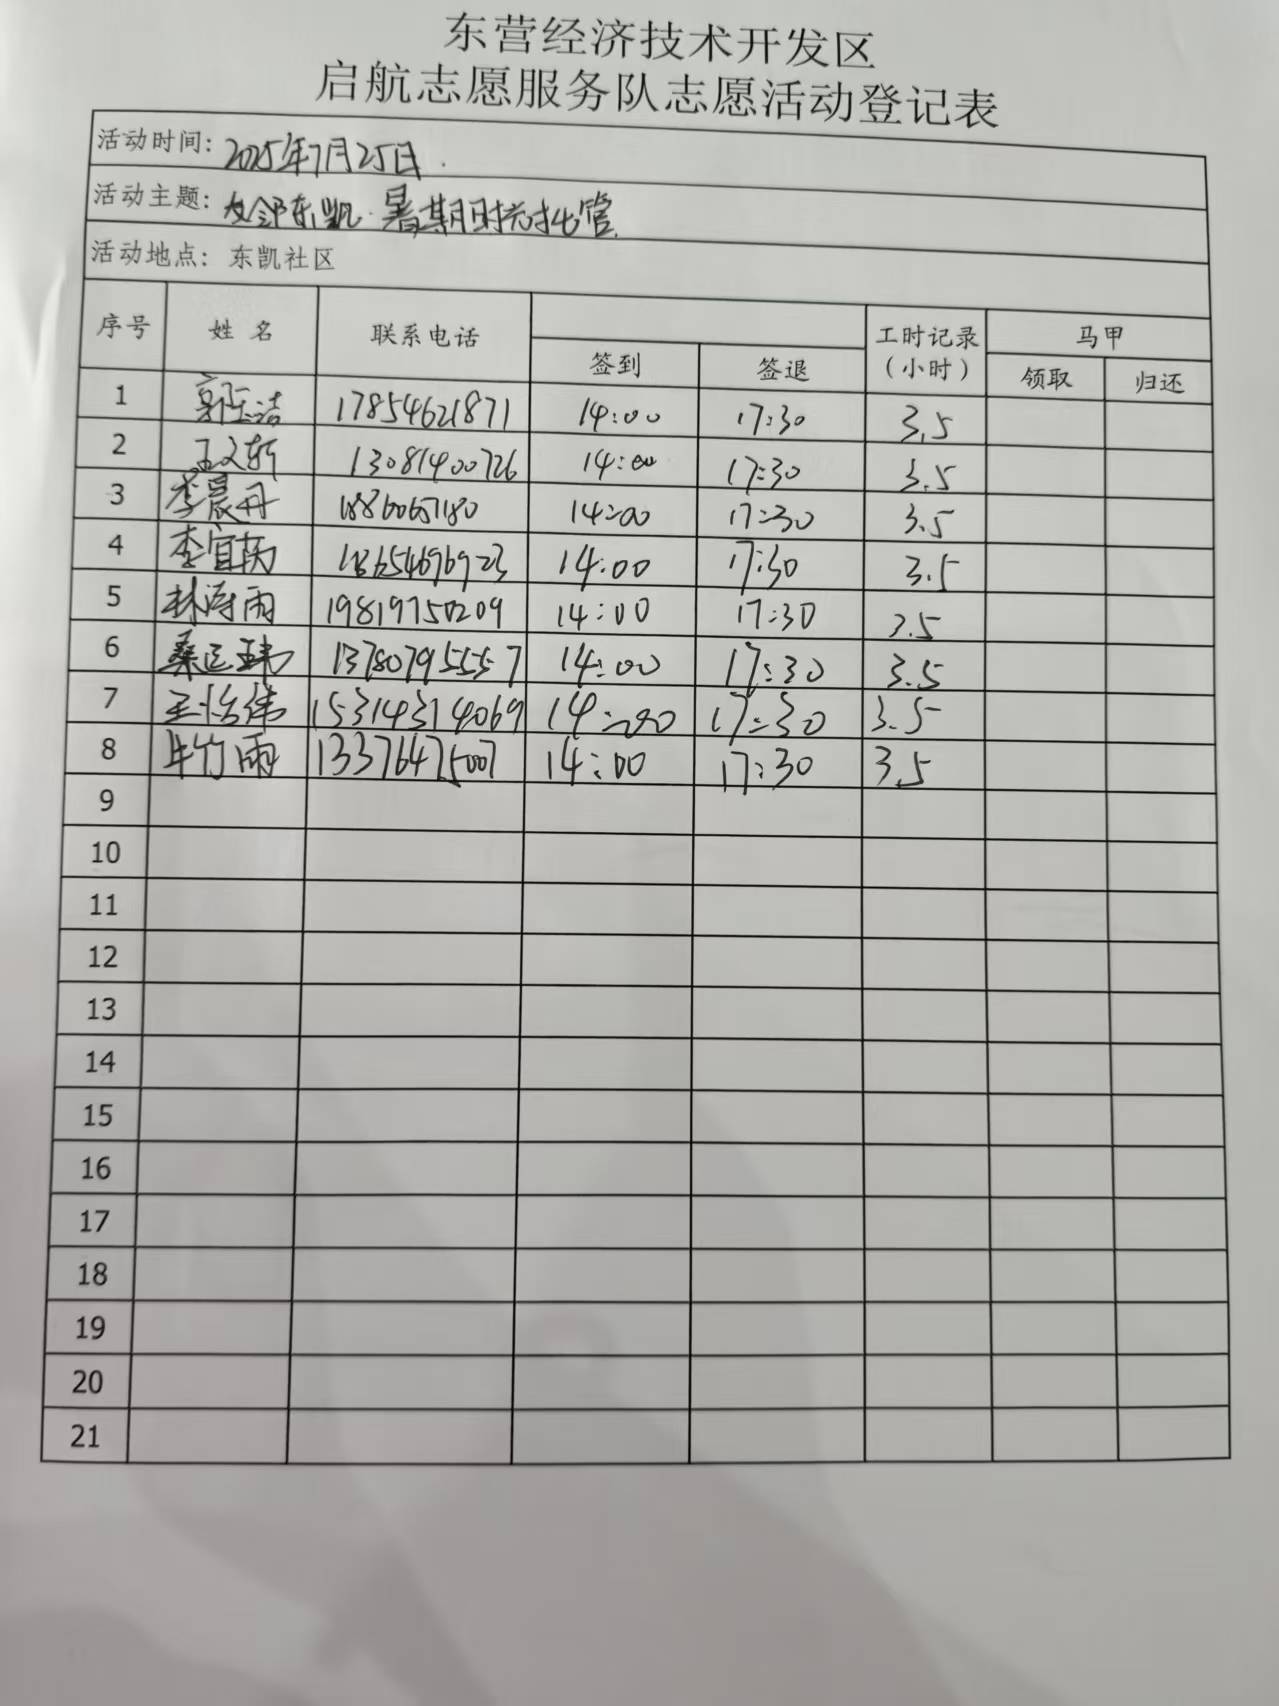 东营经济技术开发区
启航志愿服务队志愿活动登记表
活动时间: 2025年7月25日.
活动主题: 友邻东凯·暑期时光托管
活动地点: 东凯社区
序号 姓名 联系电话 签到 签退 工时记录(小时) 马甲 领取 归还
1 17854621871 14:00 17:30 3.5
2 王文轩 13081400726 14:00 17:30 3.5
3 李晨丹 14:00 17:30 3.5
4 李宜 18654696923 14:00 17:30 3.5
5 林涛雨 19819750209 14:00 17:30 3.5
6 桑运玮 13780795557 14:00 17:30 3.5
7 王怡伟 15314314069 14:00 17:30 3.5
8 牛竹雨 13376475007 14:00 17:30 3.5
9
10
11
12
13
14
15
16
17
18
19
20
21